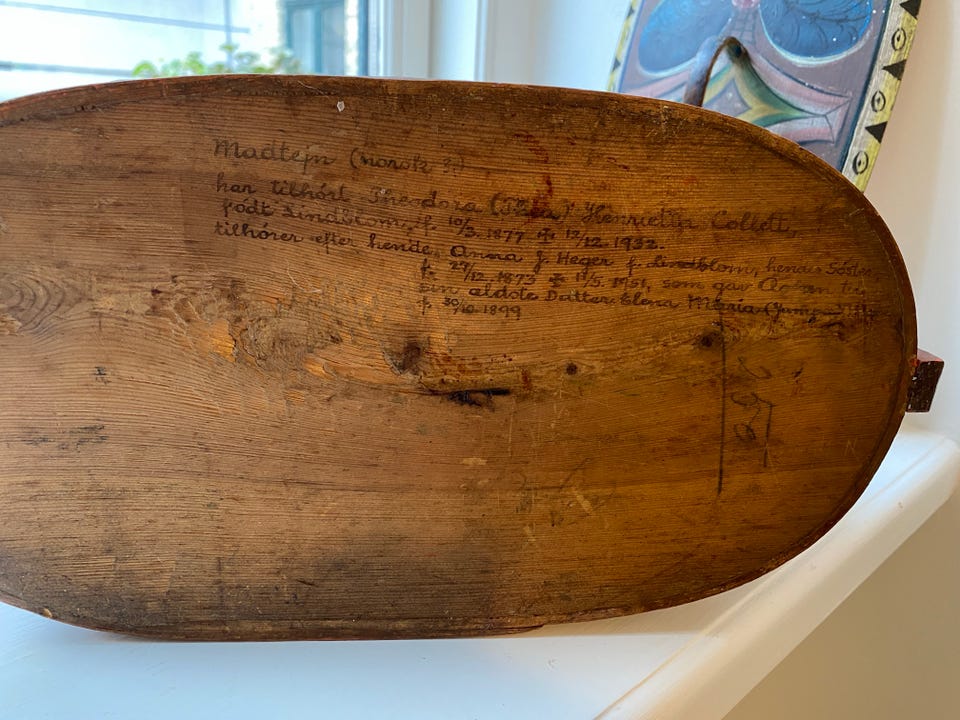 Madtejn (norsk
har tilhört Theodora (Thea) Henrietta Collett,
född Lindblom, f. 10/3. 1877 ✠ 12/12. 1932.
tilhörer efter hende, Anna J. Heger f. Lindblom, hendes Söster,
f. 27/12. 1873 ✠ 11/5. 1951, som gav
sin äldste Datter Elena Maria
f. 30/10. 1899